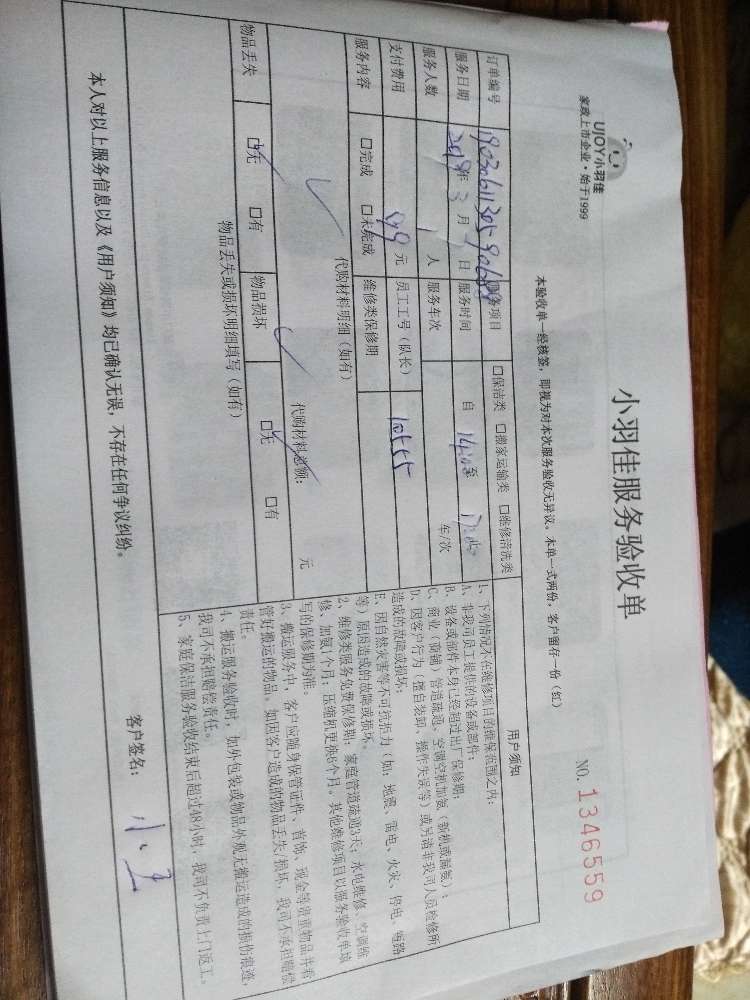 UJOY小羽佳
家政上市企业·始于1999
小羽佳服务验收单
NO. 1346559
本验收单一经核签，即视为对本次服务验收无异议。本单一式两份，客户留存一份（红）
订单编号
服务项目 □保洁类 □搬家运输类 □维修清洗类
服务日期 2019年 3 月 日 服务时间 自 14:00 至
服务人数 1 人 服务车次 车/次
支付费用 元 员工工号（队长） 10555
服务内容 □完成 □未完成 维修类保修期
代购材料明细（如有）
代购材料总额： 元
物品丢失 □无 □有 物品损坏 □无 □有
物品丢失或损坏明细填写（如有）
用户须知
1、下列情况不在维修项目的维保范围之内：
A、非我司员工提供的设备或部件；
B、设备或部件本身已经超过出厂保修期；
C、商业（商铺）管道疏通、空调空机加氨（新机或漏氨）；
D、因客户行为（擅自装卸、操作失误等）或另请非我司人员检修所
造成的故障或损坏；
E、因自然灾害等不可抗拒力（如：地震、雷电、火灾、停电、短路
等）原因造成的故障或损坏。
2、维修类服务免费保修期：家庭管道疏通3天；水电维修、空调维
修、加氨1个月；压缩机更换6个月。其他维修项目以服务验收单填
写的保修期为准。
3、搬运服务中，客户应随身保管证件、首饰、现金等贵重物品并看
管好搬运的物品。如因客户造成的物品丢失/损坏，我司不承担赔偿
责任。
4、搬运服务验收时，如外包装或物品外观无搬运造成的损伤痕迹，
我司不承担赔偿责任。
5、家庭保洁服务验收结束后超过48小时，我司不负责上门返工。
本人对以上服务信息以及《用户须知》均已确认无误，不存在任何争议纠纷。
客户签名：